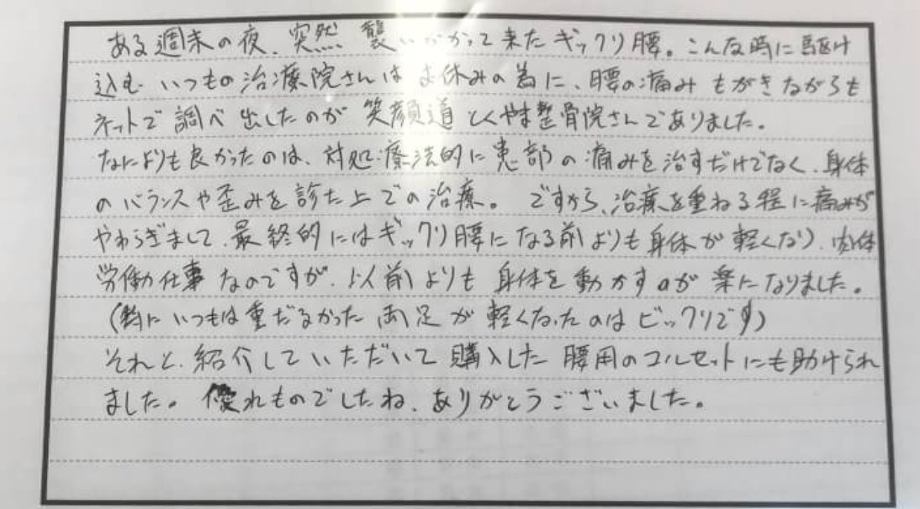 ある週末の夜、突然 襲いかかって来たギックリ腰。こんな時に駆け
込む いつもの治療院さんは お休みの為に、腰の痛み もがきながらも
ネットで調べ出したのが 笑顔道とくやま整骨院さんでありました。
なによりも良かったのは、対処療法的に患部の痛みを治すだけでなく、身体
のバランスや歪みを診た上での治療。ですから、治療を重ねる程に痛みが
やわらぎまして、最終的にはギックリ腰になる前よりも身体が軽くなり、肉体
労働仕事なのですが、以前よりも 身体を動かすのが 楽になりました。
(特にいつもは重だるかった 両足が 軽くなったのは ビックリです)
それと、紹介していただいて購入した 腰用のコルセットにも助けられ
ました。優れものでしたね、ありがとうございました。